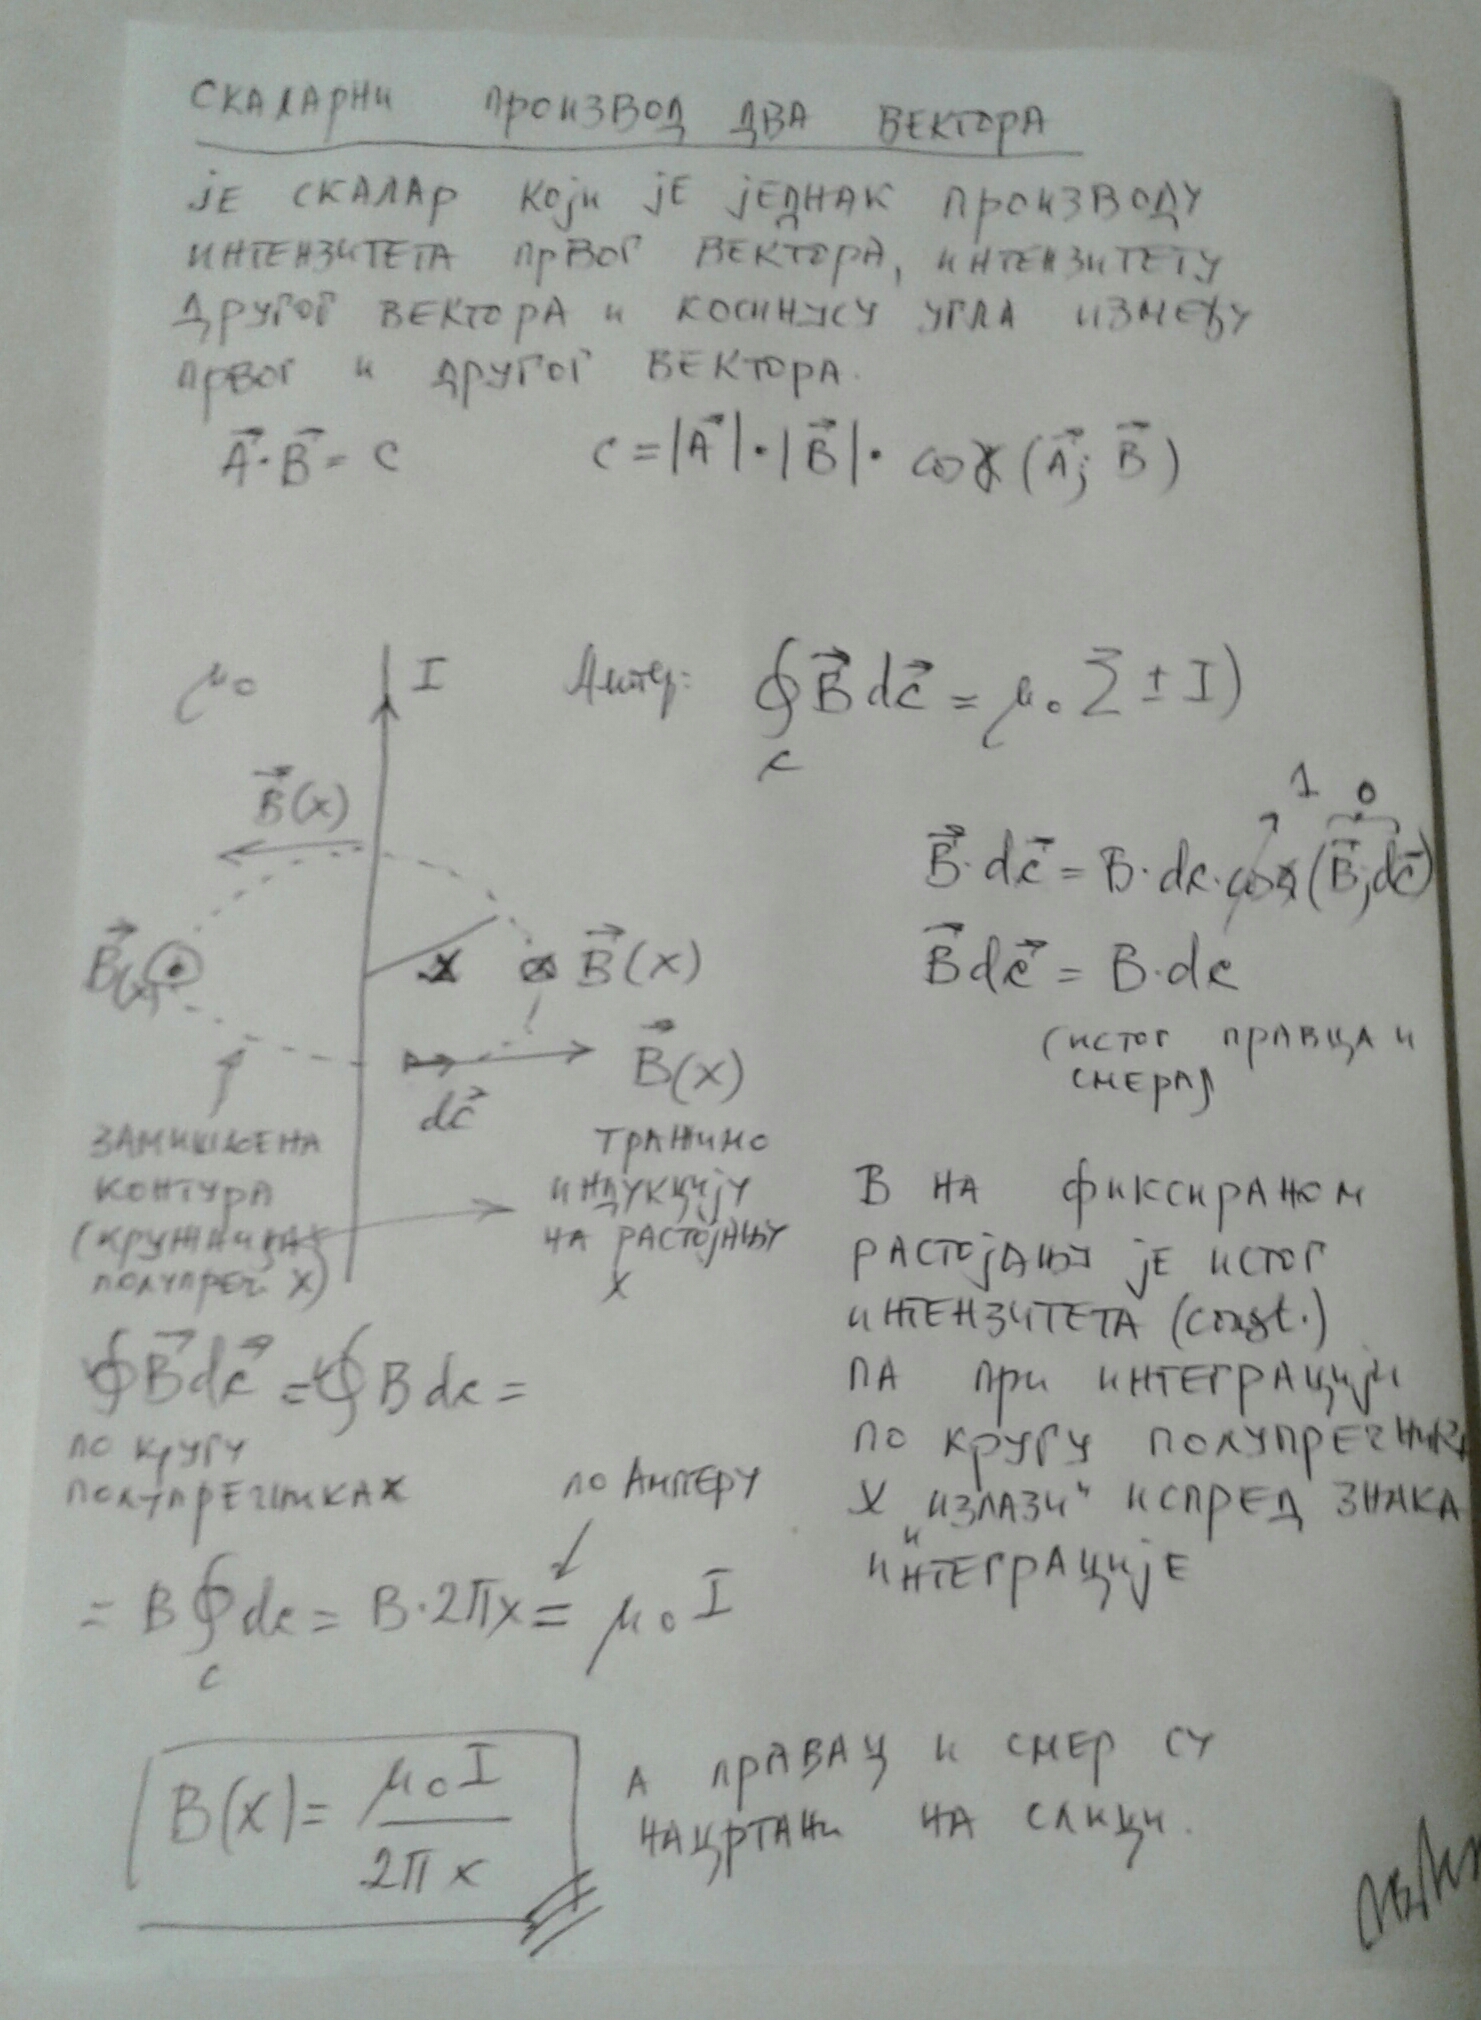 СКАЛАРНИ ПРОИЗВОД ДВА ВЕКТОРА
ЈЕ СКАЛАР КОЈИ ЈЕ ЈЕДНАК ПРОИЗВОДУ
ИНТЕНЗИТЕТА ПРВОГ ВЕКТОРА, ИНТЕНЗИТЕТУ
ДРУГОГ ВЕКТОРА И КОСИНУСУ УГЛА ИЗМЕЂУ
ПРВОГ И ДРУГОГ ВЕКТОРА.
A⃗·B⃗ = C
C = |A⃗|·|B⃗|· cos∢(A⃗; B⃗)
μ₀
I
Ампер: ∮ B⃗ dc⃗ = μ₀ Σ ± I)
c
B⃗(x)
1 0
B⃗·dc⃗ = B·dc·cos∢(B⃗; dc⃗)
B⃗(x)
x
B⃗(x)
B⃗ dc⃗ = B·dc
(ИСТОГ ПРАВЦА И
СМЕРА)
B⃗(x)
dc⃗
ЗАМИШЉЕНА
КОНТУРА
(КРУЖНИЦА
ПОЛУПРЕЧ. X)
ТРАЖИМО
ИНДУКЦИЈУ
НА РАСТОЈАЊУ
X
B НА ФИКСИРАНОМ
РАСТОЈАЊУ ЈЕ ИСТОГ
ИНТЕНЗИТЕТА (const.)
ПА ПРИ ИНТЕГРАЦИЈИ
ПО КРУГУ ПОЛУПРЕЧНИКА
X „ИЗЛАЗИ" ИСПРЕД ЗНАКА
ИНТЕГРАЦИЈЕ
∮ B⃗ dc⃗ = ∮ B dc =
ПО КРУГУ
ПОЛУПРЕЧНИКА X
ПО АМПЕРУ
= B ∮ dc = B·2πx = μ₀ I
c
B(x) = μ₀ I / 2π x
А ПРАВАЦ И СМЕР СУ
НАЦРТАНИ НА СЛИЦИ.